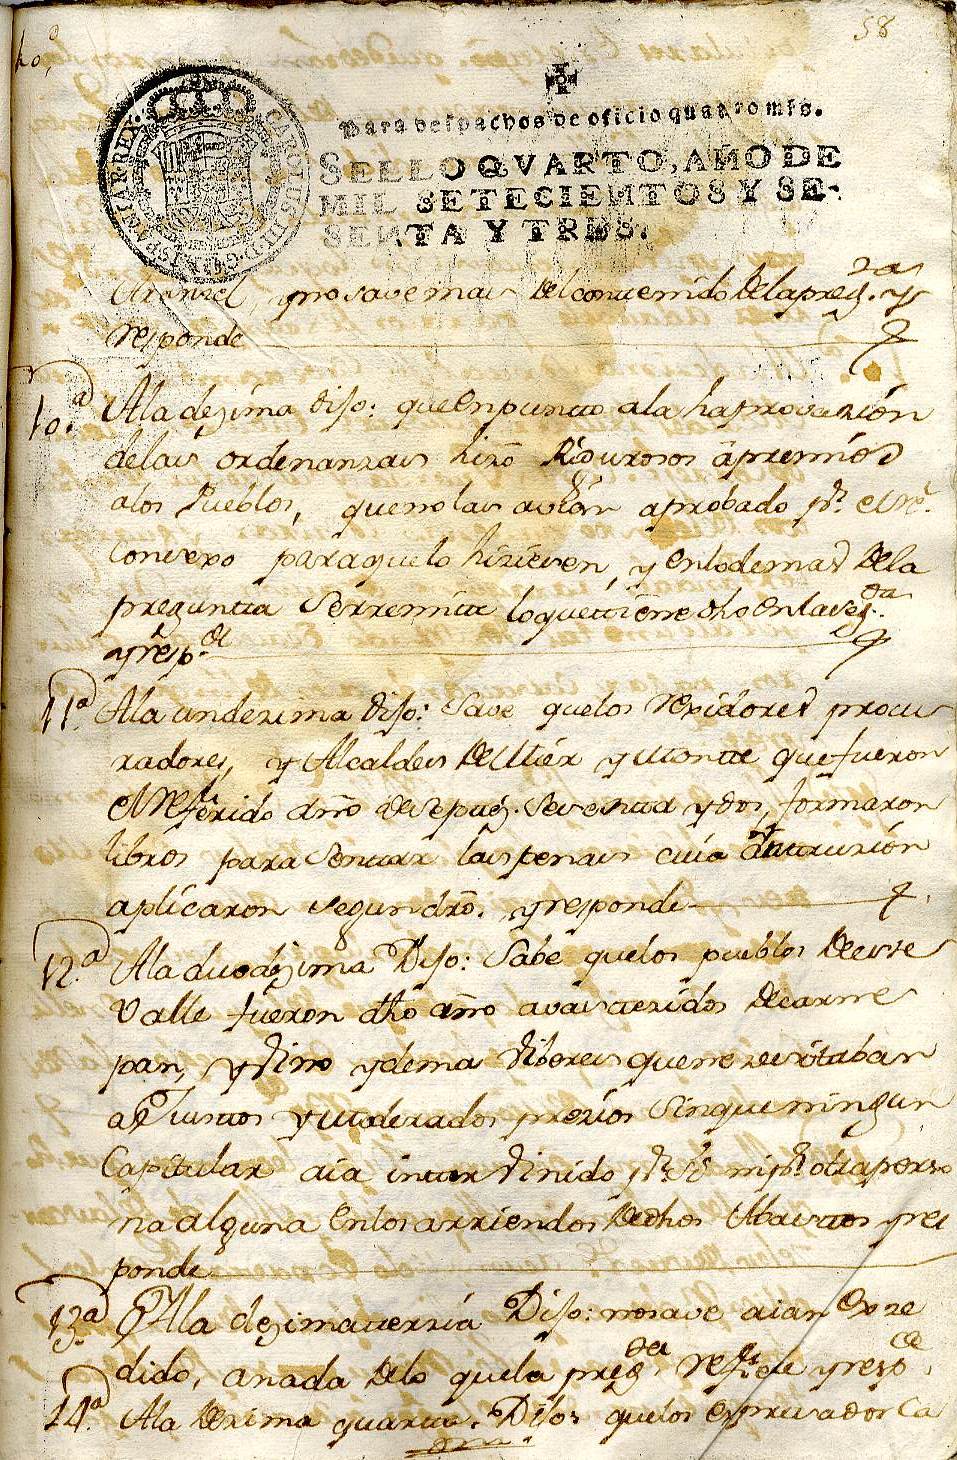 58
Para despachos de oficio quatro mrs.
SELLO QVARTO, AÑO DE
MIL SETECIENTOS Y SE-
SENTA Y TRES.
CAROLUS III D G HISPANIAR REX
Aranzel, y no save mas del contenido de la preg.ta y
responde
10.a A la dezima dijo: que en punto a la haprovazión
de las ordenanzas hizo Rigurosos apremios
a los Pueblos, que no las avían aprobado pr. el Rl.
Consexo para que lo hiziesen, y en lo demas de la
pregunta Serremite lo que tiene dho en la seg.da
y resp.de
11.a A la undezima dijo: Save que los rexidores procu
radores, y Alcaldes de Mier y Monte que fueron
el Referido año de sesenta y dos, formaron
libros para sentar las penas cuia
aplicaron segun dro. y responde
12.a A la duodezima Dijo: Sabe que los pueblos de este
Valle fueron dho año avastezidos de carne
pan, y vino y dema viberes que nezesitaban
a Justos y Moderados prezios sin que ningun
Capitular aia intervinido pr. si ni pr. otra perso
na alguna en los arriendos de dhos Abastos y res
ponde
13.a A la dezima terzia Dijo: no save aian exze
dido, a nada de lo que la preg.ta refiere y resp.de
14.a A la dezima quarta. Dijo: que los expresados Ca